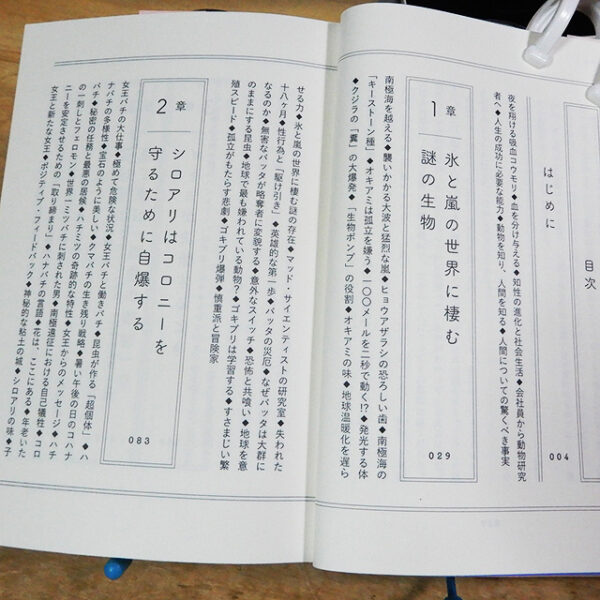 目次
はじめに
004
夜を翔ける吸血コウモリ◆血を分け与える◆知性の進化と社会生活◆会社員から動物研究
者へ◆人生の成功に必要な能力◆動物を知り、人間を知る◆人間についての驚くべき事実
1章
氷と嵐の世界に棲む
謎の生物
029
南極海を越える◆襲いかかる大波と猛烈な嵐◆ヒョウアザラシの恐ろしい歯◆南極海の
「キーストーン種」◆オキアミは孤立を嫌う◆一〇〇メールを二秒で動く!?◆発光する体
◆クジラの「糞」の大爆発◆「生物ポンプ」の役割◆オキアミの味◆地球温暖化を遅ら
せる力◆氷と嵐の世界に棲む謎の存在◆マッド・サイエンティストの研究室◆失われた
十八ヶ月◆性行為と「駆け引き」◆英雄的な第一歩◆バッタの災厄◆なぜバッタは大群に
なるのか◆無害なバッタが略奪者に変貌する◆意外なスイッチ◆恐怖と共喰い◆地球を意
のままにする昆虫◆地球で最も嫌われている動物?◆ゴキブリは学習する◆すさまじい繁
殖スピード◆孤立がもたらす悲劇◆ゴキブリ爆弾◆慎重派と冒険家
2章
シロアリはコロニーを
守るために自爆する
083
女王バチの大仕事◆極めて危険な状況◆女王バチと働きバチ◆昆虫が作る「超個体」◆ハ
ナバチの多様性◆宝石のように美しい◆クマバチの生き残り戦略◆暑い午後の日のコハナ
バチ◆秘密の任務と最悪の岡候◆ハチミツの奇跡的な特性◆女王からのメッセージ◆ハチ
の一刺しとフェロモン◆世界一ミツバチに刺された男◆南極遠征における自己犠牲◆コロ
ニーを安定させるための「取り締まり」◆ハナバチの言語◆花は、ここにある◆年老いた
女王と新たな女王◆ポジティブ・フィードバック◆神秘的な粘土の城◆シロアリの味◆子